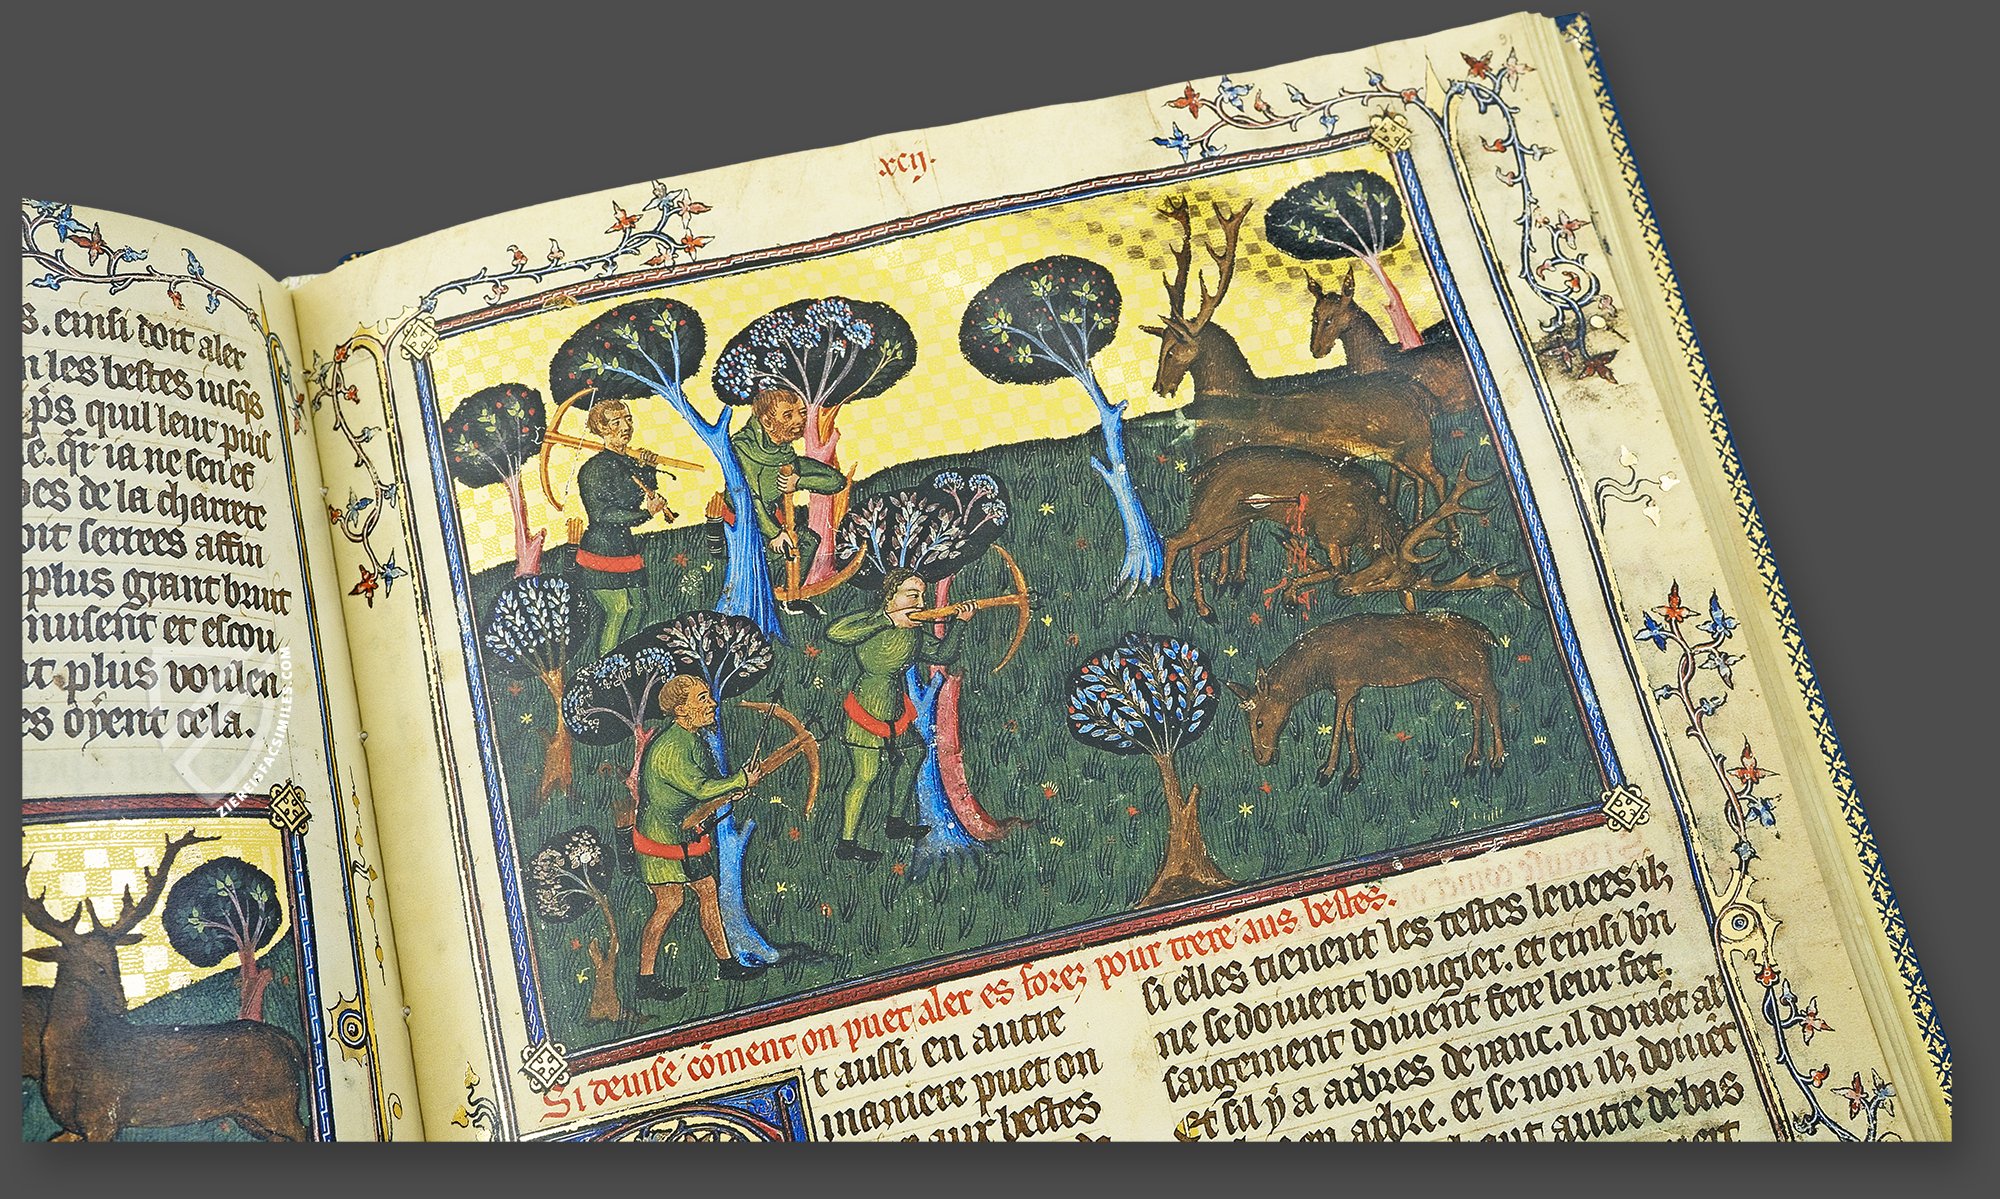 s. einsi doit aler
n les bestes iusq̃s
p̃s quil leur puis
e. q̃r ia ne sen es
es de la charrete
oit serrees affin
plus grant bruit
musent et escou
t plus voulen
es oÿent cela.
ZIEREISFACSIMILES.COM
91
xcij.
Si deuise cõment on puet aler es forez pour trere aus bestes.
t aussi en autre
maniere puet on
aux bestes
si elles tienent les testes leuees ilz
ne se doiuent bougier. et einsi bñ
saigement doiuent fere leur fet.
Et sil ÿ a arbres deuant. il doiuẽt al
en arbre. et se non ilz doiuẽt
autre de bas